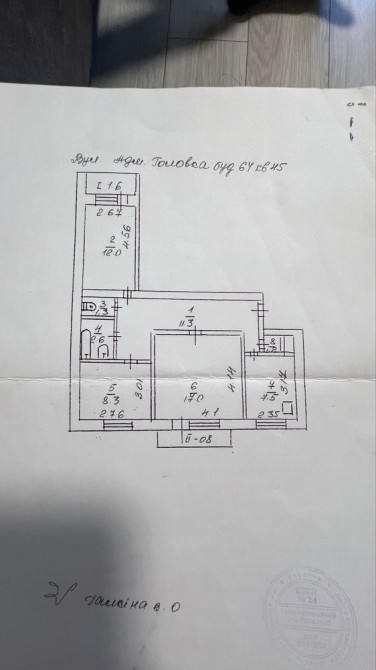 Вул. Адм. Головка буд 64 кв 45
I 1.6
2.67
4.56
2
12.0
3
1.3
1
11.3
4
2.6
8
5
8.3
3.01
6
17.0
4.14
7
7.5
3.17
2.76
4.1
2.35
II-0.8